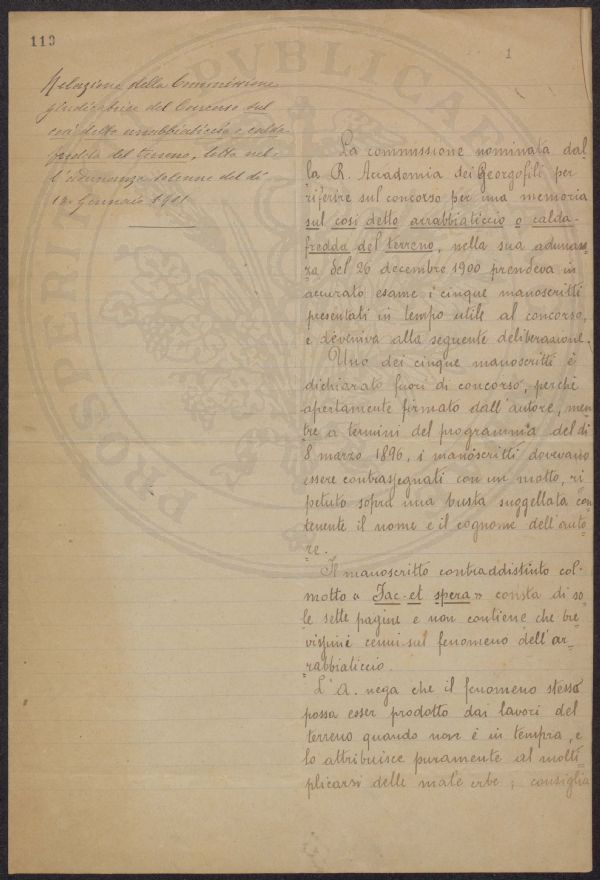 113
1
Relazione della Commissione
giudicatrice del Concorso sul
così detto arrabbiaticcio e calda-
fredda del terreno, letta nel-
l'adunanza solenne del dì
13 Gennaio 1901
La commissione nominata dal-
la R. Accademia dei Georgofili per
riferire sul concorso per una memoria
sul così detto arrabbiaticcio o calda-
fredda del terreno, nella sua adunan-
za del 26 decembre 1900 prendeva in
accurato esame i cinque manoscritti
presentati in tempo utile al concorso,
e deveniva alla seguente deliberazione.
Uno dei cinque manoscritti è
dichiarato fuori di concorso, perchè
apertamente firmato dall'autore, men-
tre a termini del programma del dì
8 marzo 1896, i manoscritti dovevano
essere contrassegnati con un motto, ri-
petuto sopra una busta suggellata con-
tenente il nome e il cognome dell'auto-
re.
Il manoscritto contraddistinto col
motto « Fac et spera » consta di so-
le sette pagine e non contiene che bre-
vissimi cenni sul fenomeno dell'ar-
rabbiaticcio.
L'A. nega che il fenomeno stesso
possa esser prodotto dai lavori del
terreno quando non è in tempra, e
lo attribuisce puramente al molti-
plicarsi delle male erbe; consiglia
PROSPERITATI PVBLICAE